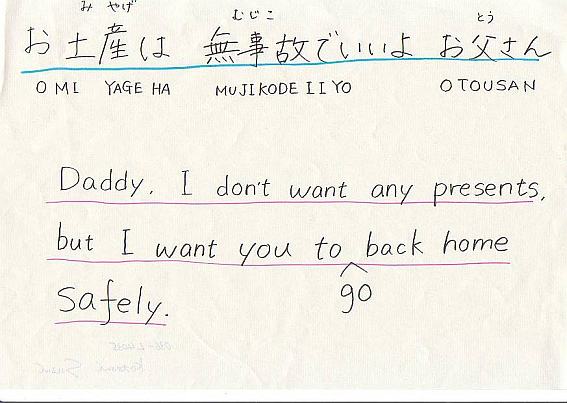 み やげ むじこ とう
お土産は 無事故でいいよ お父さん
OMI YAGE HA MUJIKODE IIYO OTOUSAN
Daddy. I don't want any presents,
but I want you to back home
go
Safely.